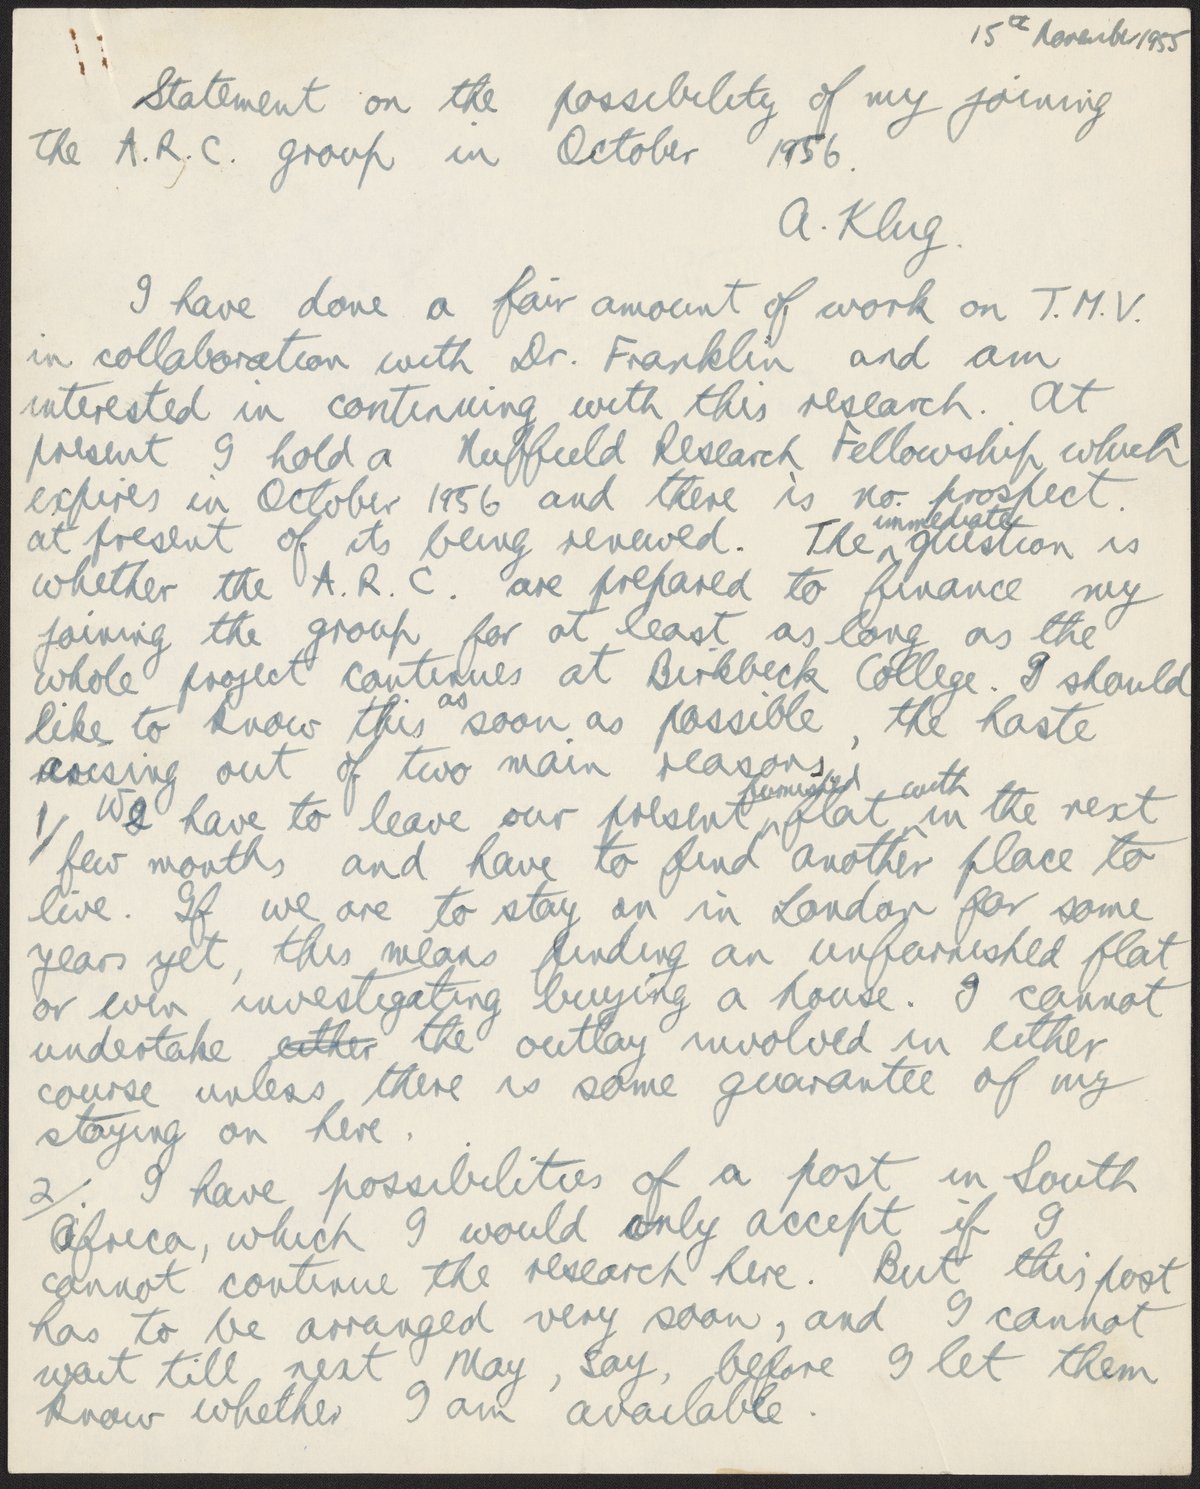 15th November 1955
Statement on the possibility of my joining
the A.R.C. group in October 1956.
A. Klug.
I have done a fair amount of work on T.M.V.
in collaboration with Dr. Franklin and am
interested in continuing with this research. At
present I hold a Nuffield Research Fellowship which
expires in October 1956 and there is no prospect
at present of its being renewed. The immediate question is
whether the A.R.C. are prepared to finance my
joining the group for at least as long as the
whole project continues at Birkbeck College. I should
like to know this as soon as possible, the haste
arising out of two main reasons.
1/ We have to leave our present furnished flat with in the next
few months and have to find another place to
live. If we are to stay on in London for some
years yet, this means finding an unfurnished flat
or even investigating buying a house. I cannot
undertake either the outlay involved in either
course unless there is some guarantee of my
staying on here.
2/. I have possibilities of a post in South
Africa, which I would only accept if I
cannot continue the research here. But this post
has to be arranged very soon, and I cannot
wait till next May, say, before I let them
know whether I am available.